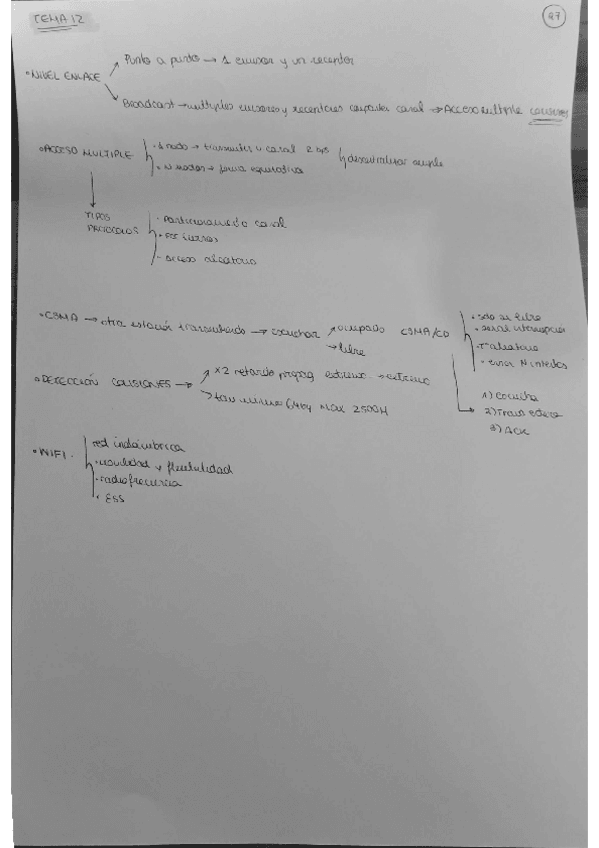 TEMA 12
97
• NIVEL ENLACE
Punto a punto → 1 emisor y un receptor
Broadcast → multiples emisores y receptores comparten canal → Acceso multiple colisiones
• ACCESO MULTIPLE
• 1 nodo → transmitir canal
• N nodos → forma equitativa
descentralizar simple
TIPOS PROTOCOLOS
• Particionamiento canal
• Por turnos
• acceso aleatorio
• CSMA → otra estación transmitiendo → escuchar
ocupado
→ libre
CSMA/CD
• solo si libre
• señal interrupción
• T aleatorio
• error N intentos
• DETECCIÓN COLISIONES
x2 retardo propag extremo → extremo
tam minimo 64by MAX 2500M
1) Escucha
2) Trans
3) ACK
• WIFI
red inalámbrica
• movilidad y flexibilidad
• radiofrecuencia
• ESS